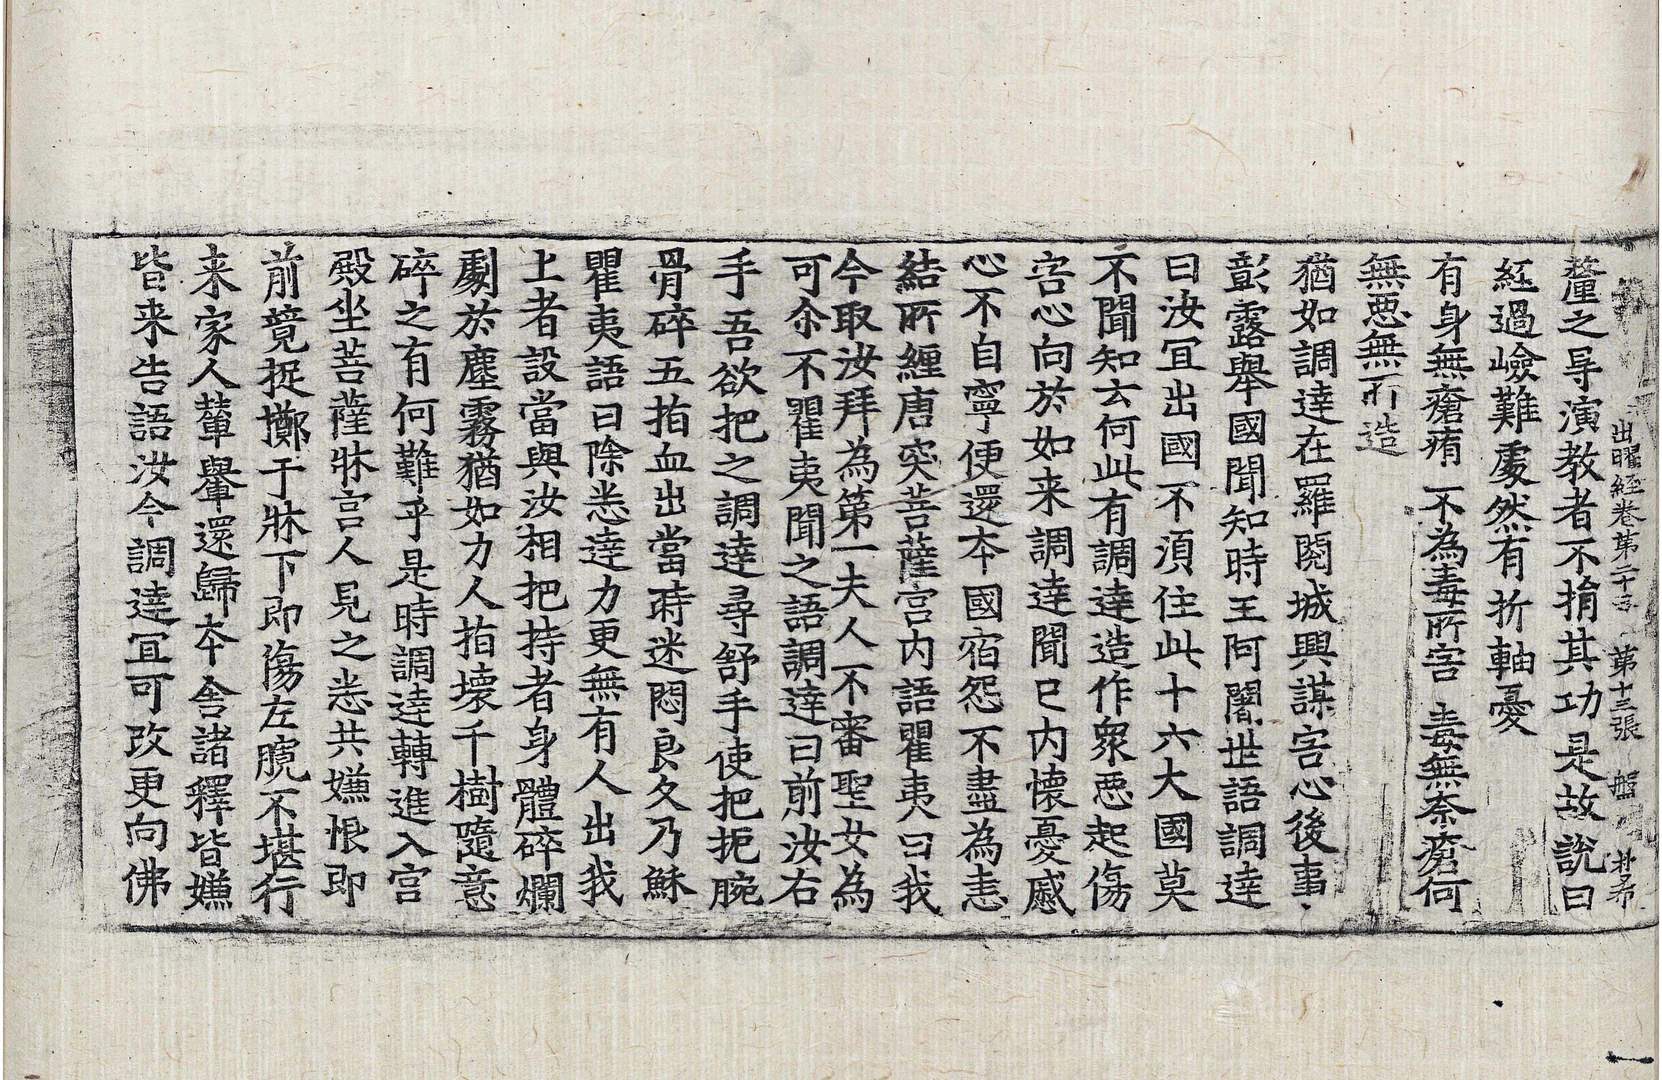 出曜経巻第二十 第十三張 盤
𨤲之导演教者不捐其功是故說曰
経過嶮難處然有折軸憂
有身無瘡疣 不為毒所害 毒無柰瘡何
無悪無所造
猶如調達在羅閱城興謀害心後事
彰露舉國聞知時王阿闍世語調達
曰汝冝出國不湏住此十六大國莫
不聞知云何此有調達造作衆悪起傷
害心向於如来調達聞已内懷憂慼
心不自寧便還夲國宿怨不盡為恚
結所纏唐突菩薩宫内語瞿夷曰我
今取汝拜為第一夫人不審聖女為
可尒不瞿夷聞之語調達曰前汝右
手吾欲把之調達尋舒手使把扼腕
骨碎五拍血出當時迷悶良久乃穌
瞿夷語曰除悉達力更無有人出我
上者設當與汝相把持者身體碎爛
劇於塵霧猶如力人拍壊千樹隨意
碎之有何難乎是時調達轉進入宫
殿坐菩薩牀宫人見之悉共嫌恨即
前競捉擲于牀下即傷左髖不堪行
来家人輦轝還歸夲舎諸釋皆嫌
皆来告語汝今調達冝可改更向佛